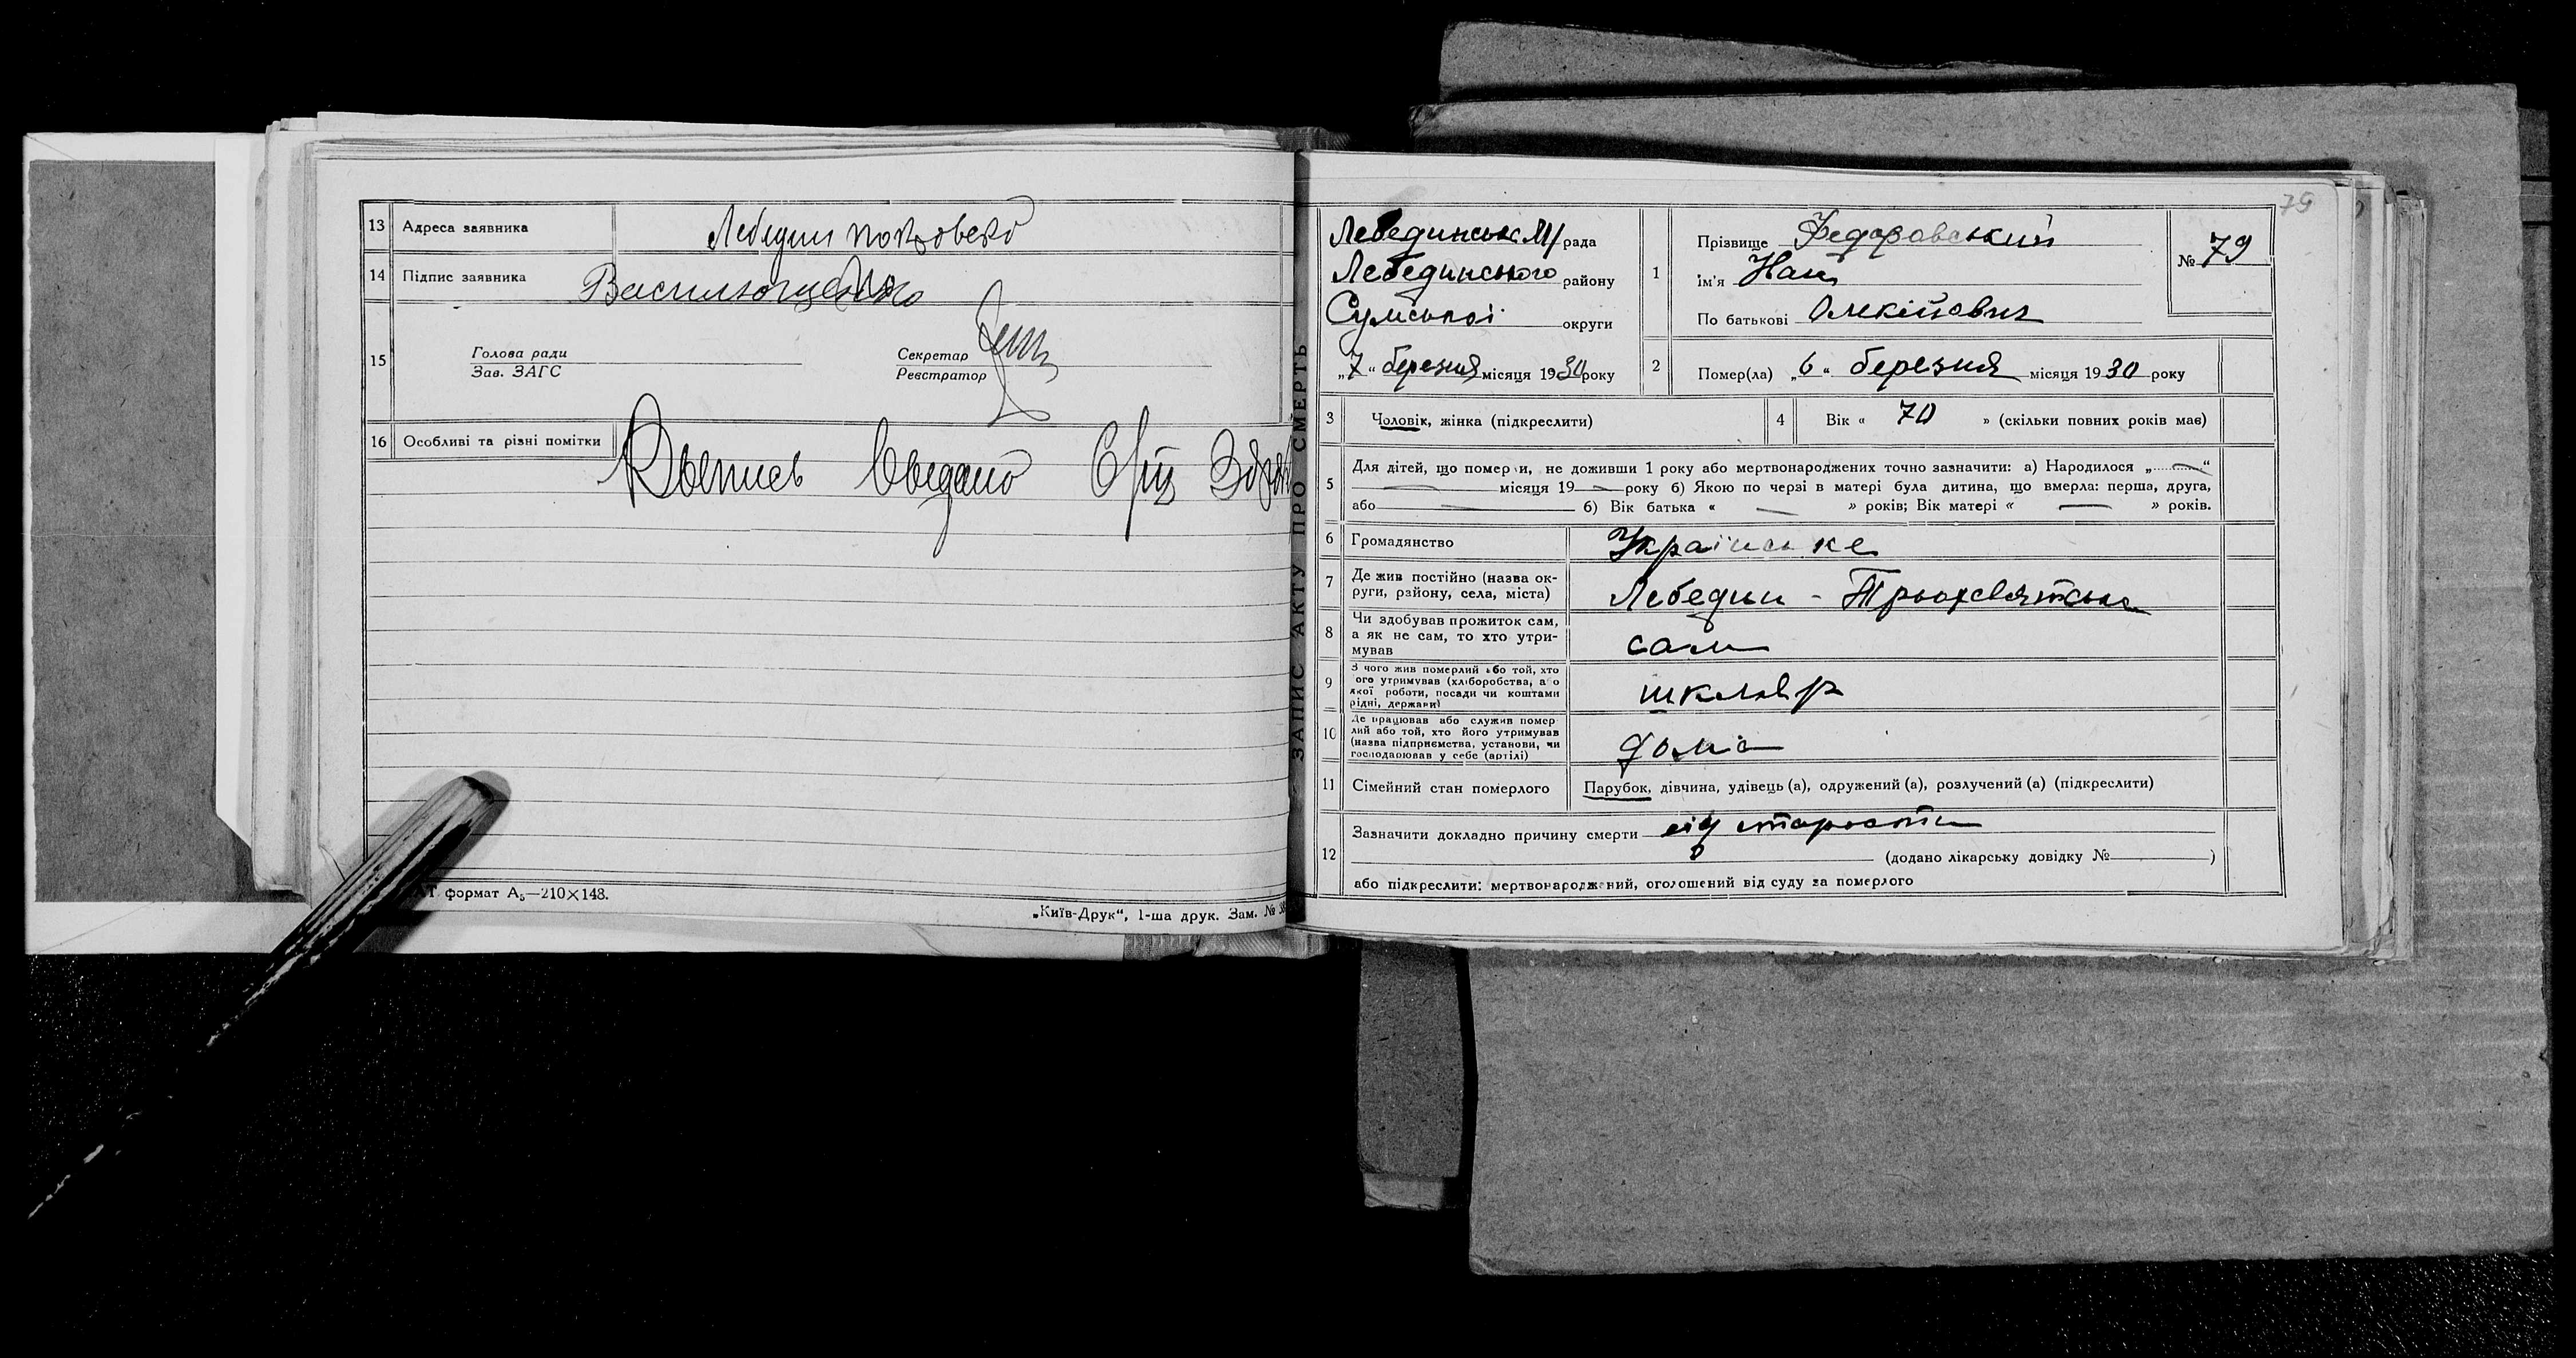 13 Адреса заявника Лебедин
14 Підпис заявника
15 Голова ради
Зав. ЗАГС
Секретар
Реєстратор
16 Особливі та різні помітки
формат А₅—210×148.
„Київ-Друк“, 1-ша друк. Зам. №
ЗАПИС АКТУ ПРО СМЕРТЬ
79
Лебединськ рада
Лебединського району
Сумської округи
„7“ березня місяця 1930 року
1 Прізвище Федоровський
Ім'я
По батькові
№ 79
2 Помер(ла) „6“ березня місяця 1930 року
3 Чоловік, жінка (підкреслити)
4 Вік « 70 » (скільки повних років має)
5 Для дітей, що померли, не доживши 1 року або мертвонароджених точно зазначити: а) Народилося „ — “
— місяця 19 — року б) Якою по черзі в матері була дитина, що вмерла: перша, друга,
або — б) Вік батька « — » років; Вік матері « — » років.
6 Громадянство Українське
7 Де жив постійно (назва ок-
руги, району, села, міста) Лебедин -
8 Чи здобував прожиток сам,
а як не сам, то хто утри-
мував сам
9 З чого жив померлий або той, хто
ого утримував (хліборобства, або
якої роботи, посади чи коштами
рідні, держави)
10 Де працював або служив помер
лий або той, хто його утримував
(назва підприємства, установи, чи
господарював у себе (артілі) дома
11 Сімейний стан померлого Парубок, дівчина, удівець (а), одружений (а), розлучений (а) (підкреслити)
12 Зазначити докладно причину смерти від старости
(додано лікарську довідку № )
або підкреслити: мертвонароджений, оголошений від суду за померлого